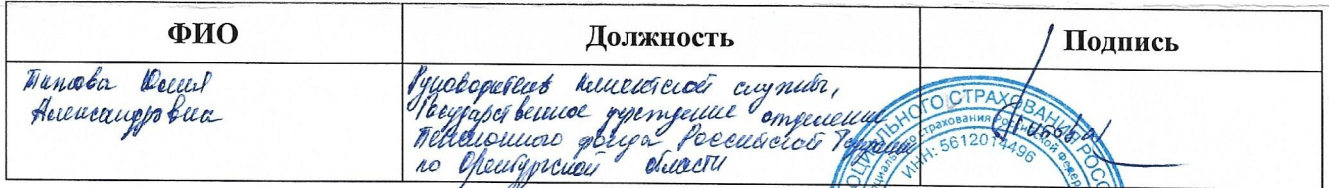 ФИО Должность Подпись
Юлия
Александровна
Руководитель клиентской службы,
Государственное учреждение отделение
Пенсионного фонда Российской Федерации
по Оренбургской области
СТРАХОВАНИЯ РОСС
страхования Российской Федер
ИНН: 5612014496